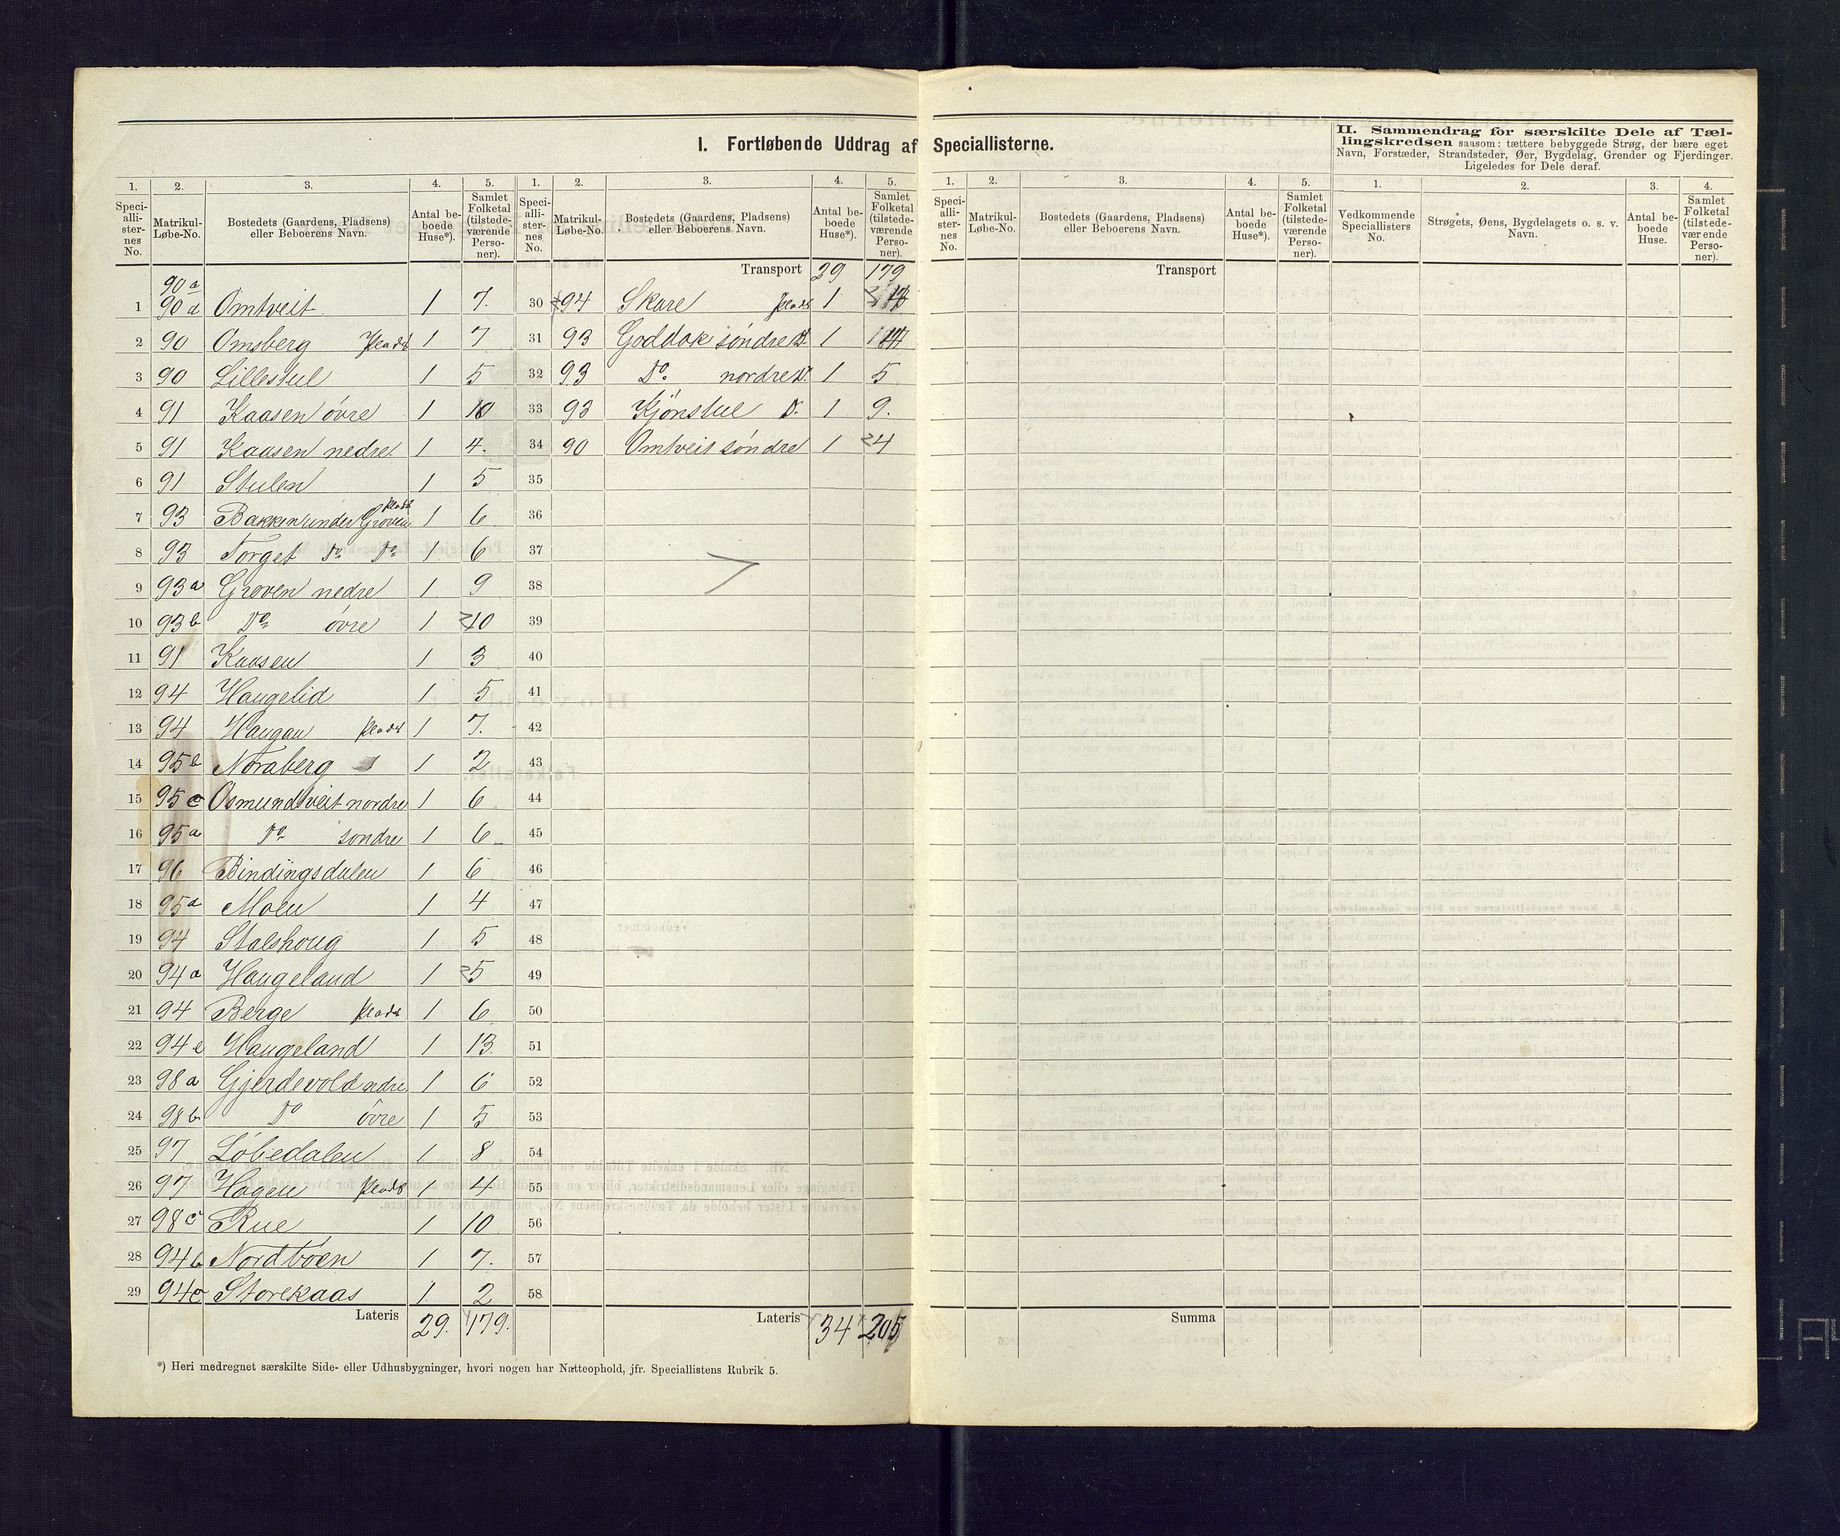 I. Fortløbende Uddrag af Speciallisterne.
II. Sammendrag for særskilte Dele af Tællingskredsen saasom: tættere bebyggede Strøg, der bære eget Navn, Forstæder, Strandsteder, Øer, Bygdelag, Grender og Fjerdinger. Ligeledes for Dele deraf.
1. 2. 3. 4. 5. 1. 2. 3. 4. 5. 1. 2. 3. 4. 5. 1. 2. 3. 4.
Speciallisternes No. Matrikul-Løbe-No. Bostedets (Gaardens, Pladsens) eller Beboerens Navn. Antal beboede Huse*). Samlet Folketal (tilstedeværende Personer).
Speciallisternes No. Matrikul-Løbe-No. Bostedets (Gaardens, Pladsens) eller Beboerens Navn. Antal beboede Huse*). Samlet Folketal (tilstedeværende Personer).
Speciallisternes No. Matrikul-Løbe-No. Bostedets (Gaardens, Pladsens) eller Beboerens Navn. Antal beboede Huse*). Samlet Folketal (tilstedeværende Personer).
Vedkommende Speciallisters No. Strøgets, Øens, Bygdelagets o. s. v. Navn. Antal beboede Huse. Samlet Folketal (tilstedeværende Personer).
90a
1 90d Omtveit 1 7.
2 90 Omsberg Plads 1 7
3 90 Lillestul 1 5
4 91 Kaasen øvre 1 10
5 91 Kaasen nedre 1 4.
6 91 Stulen 1 5
7 93 Bakken under Groven Plads 1 6
8 93 Torget Do Do 1 6
9 93a Groven nedre 1 9
10 93b Do øvre 1 10
11 91 Kaasen 1 3
12 94 Haugelid 1 5
13 94 Haugan Plads 1 7.
14 95b Noraberg 1 2
15 95c Osmundtveit nordre 1 6
16 95a Do søndre 1 6
17 96 Bindingsdalen 1 6
18 95a Moen 1 4
19 94 Stalshoug 1 5
20 94a Haugeland 1 5
21 94 Berge Plads 1 6
22 94e Haugeland 1 13.
23 98a Gjerdevold nedre 1 6
24 98b Do øvre 1 5
25 97 Løbedalen 1 8
26 97 Hagen Plads 1 4
27 98c Rue 1 10
28 94b Nordbøen 1 7.
29 94c Storekaas 1 2
Lateris 29. 179.
Transport 29 179
30 94 Skare Plads 1
31 93 Goddok søndre D. 1
32 93 Do. nordre D. 1 5
33 93 Kjønstul D. 1 9.
34 90 Omtveit søndre 1 4
35
36
37
38
39
40
41
42
43
44
45
46
47
48
49
50
51
52
53
54
55
56
57
58
Lateris 34 205
Transport
Summa
*) Heri medregnet særskilte Side- eller Udhusbygninger, hvori nogen har Natteophold, jfr. Speciallistens Rubrik 5.